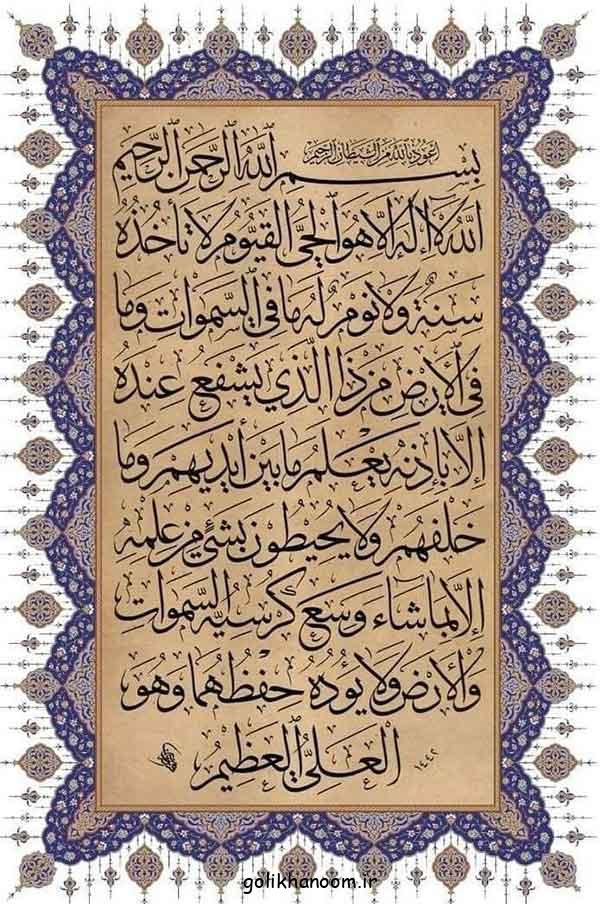 اعوذ بالله من الشيطان الرجيم
بِسْمِ اللهِ الرَّحْمٰنِ الرَّحِيمِ
اَللهُ لَآ اِلٰهَ اِلَّا هُوَ الْحَيُّ الْقَيُّومُ لَا تَأْخُذُهُ
سِنَةٌ وَلَا نَوْمٌ لَهُ مَا فِي السَّمٰوَاتِ وَمَا
فِي الْاَرْضِ مَنْ ذَا الَّذِي يَشْفَعُ عِنْدَهُ
اِلَّا بِاِذْنِهِ يَعْلَمُ مَا بَيْنَ اَيْدِيهِمْ وَمَا
خَلْفَهُمْ وَلَا يُحِيطُونَ بِشَيْءٍ مِنْ عِلْمِهِ
اِلَّا بِمَا شَاءَ وَسِعَ كُرْسِيُّهُ السَّمٰوَاتِ
وَالْاَرْضَ وَلَا يَؤُدُهُ حِفْظُهُمَا وَهُوَ
الْعَلِيُّ الْعَظِيمُ
١٤٤٢
golikhanoom.ir